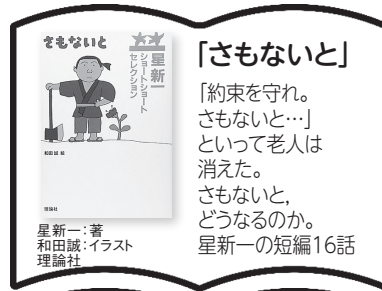 さもないと
星新一
ショートショート
セレクション
和田誠 絵
理論社
星新一:著
和田誠:イラスト
理論社
「さもないと」
「約束を守れ。
さもないと…」
といって老人は
消えた。
さもないと,
どうなるのか。
星新一の短編16話